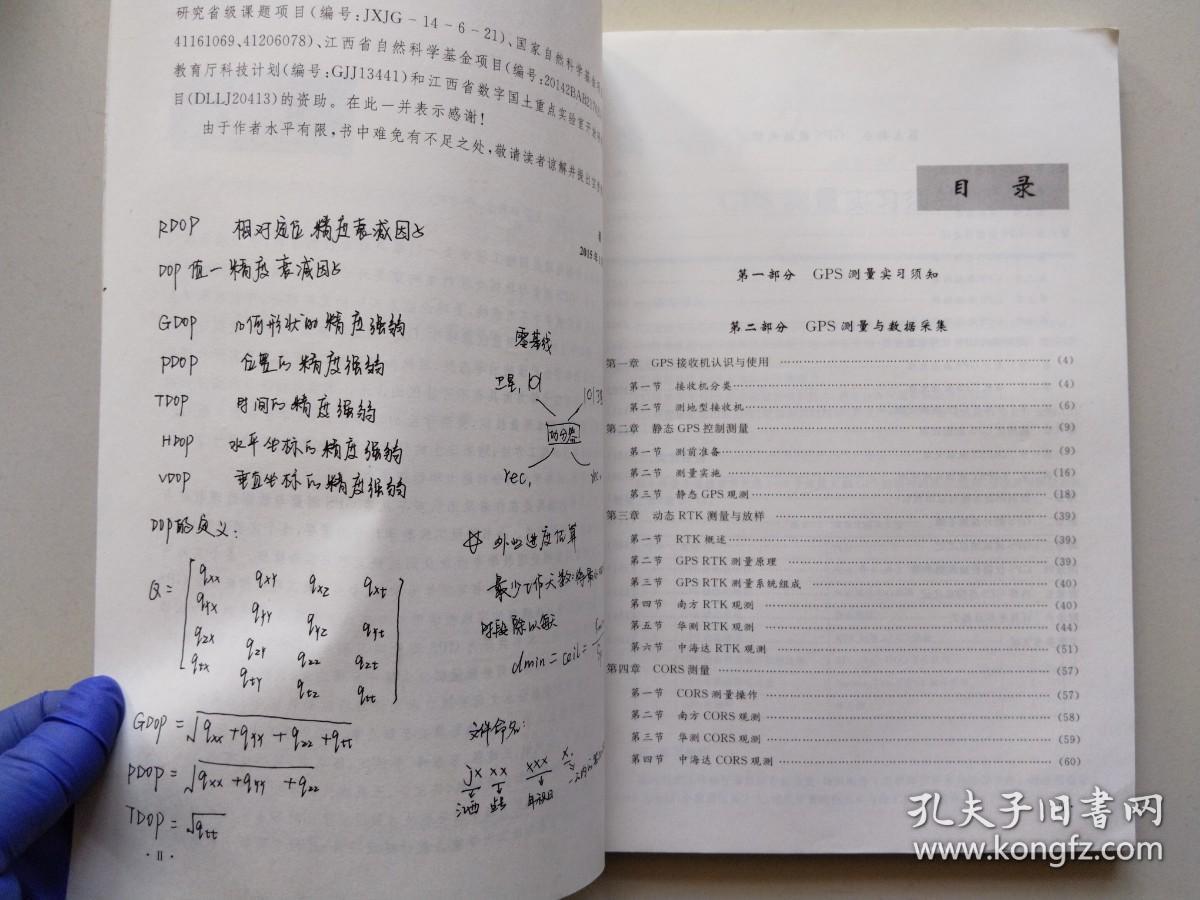 研究省级课题项目(编号:JXJG-14-6-21)、国家自然科学基金
41161069、41206078)、江西省自然科学基金项目(编号:20142BAB
教育厅科技计划(编号:GJJ13441)和江西省数字国土重点实验室开放
目(DLLJ20413)的资助。在此一并表示感谢!
由于作者水平有限,书中难免有不足之处,敬请读者谅解并提出宝贵
2015年
RDOP 相对定位精度衰减因子
DOP值—精度衰减因子
GDOP 几何形状的精度强弱
PDOP 位置的精度强弱
TDOP 时间的精度强弱
HDOP 水平坐标的精度强弱
VDOP 垂直坐标的精度强弱
DOP的定义:
Q= qxx qxy qxz qxt
qyx qyy qyz qyt
qzx qzy qzz qzt
qtx qty qtz qtt
GDOP=√qxx+qyy+qzz+qtt
PDOP=√qxx+qyy+qzz
TDOP=√qtt
·Ⅱ·
零基线
卫星,101
功分器
rec,
外业进度估算
最少工作天数:
时段除以每天
dmin=ceil=
文件命名:
jx xx xxx x
江西 点名 年积日
目 录
第一部分 GPS测量实习须知
第二部分 GPS测量与数据采集
第一章 GPS接收机认识与使用 (4)
第一节 接收机分类 (4)
第二节 测地型接收机 (6)
第二章 静态GPS控制测量 (9)
第一节 测前准备 (9)
第二节 测量实施 (16)
第三节 静态GPS观测 (18)
第三章 动态RTK测量与放样 (39)
第一节 RTK概述 (39)
第二节 GPS RTK测量原理 (39)
第三节 GPS RTK测量系统组成 (40)
第四节 南方RTK观测 (40)
第五节 华测RTK观测 (44)
第六节 中海达RTK观测 (51)
第四章 CORS测量 (57)
第一节 CORS测量操作 (57)
第二节 南方CORS观测 (58)
第三节 华测CORS观测 (59)
第四节 中海达CORS观测 (60)
孔夫子旧书网
www.kongfz.com